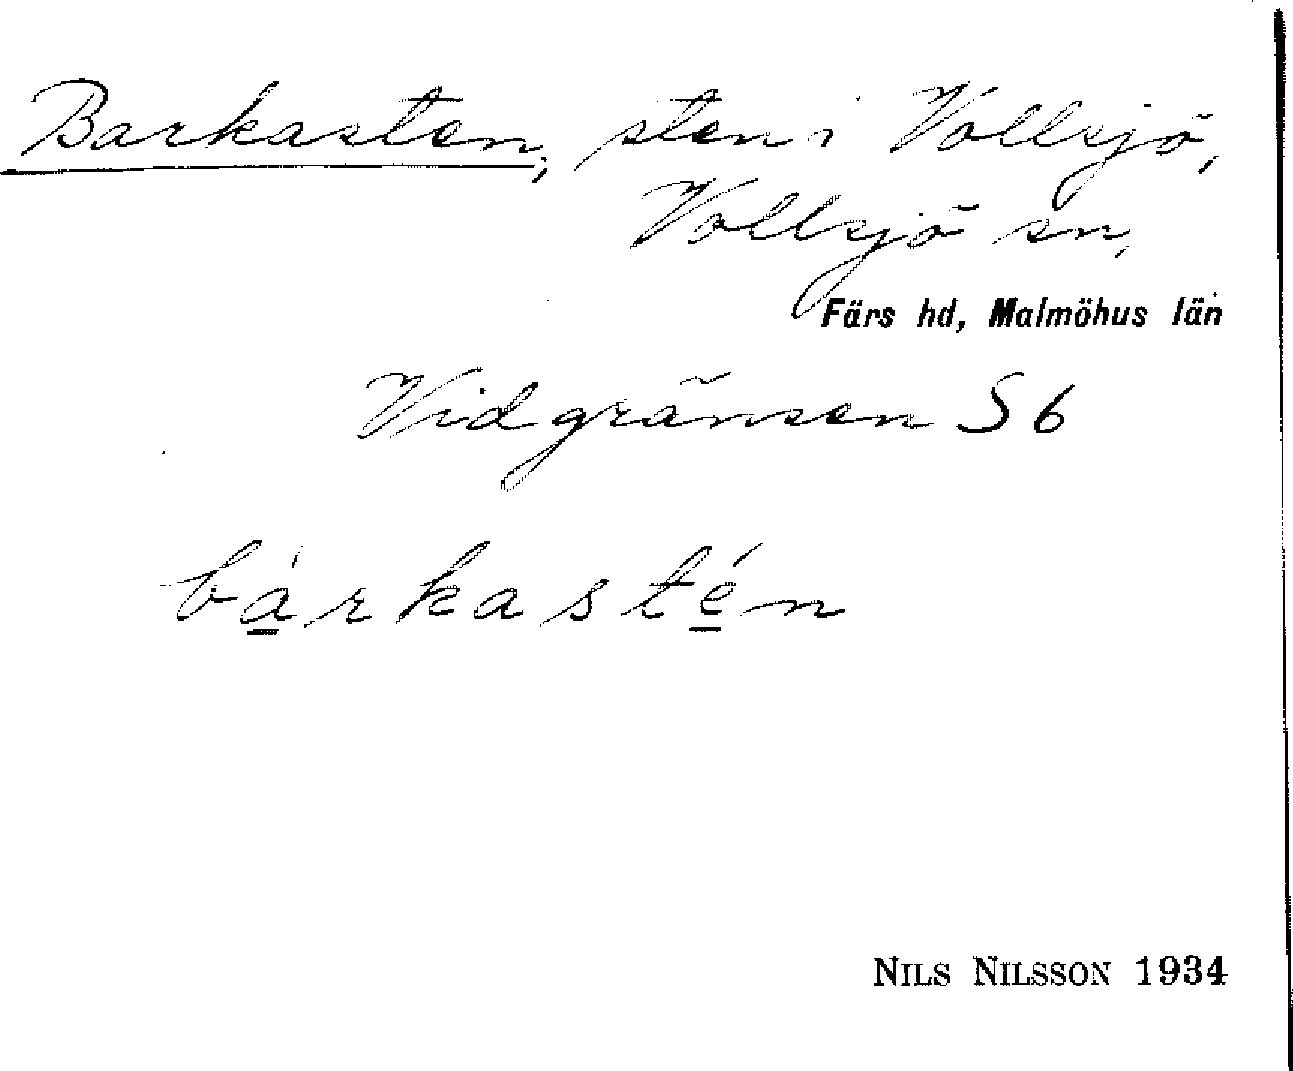 Barkasten, sten i Vollsjö,
Vollsjö sn,
Färs hd, Malmöhus län
Vid gränsen S 6
bàrkastén
NILS NILSSON 1934